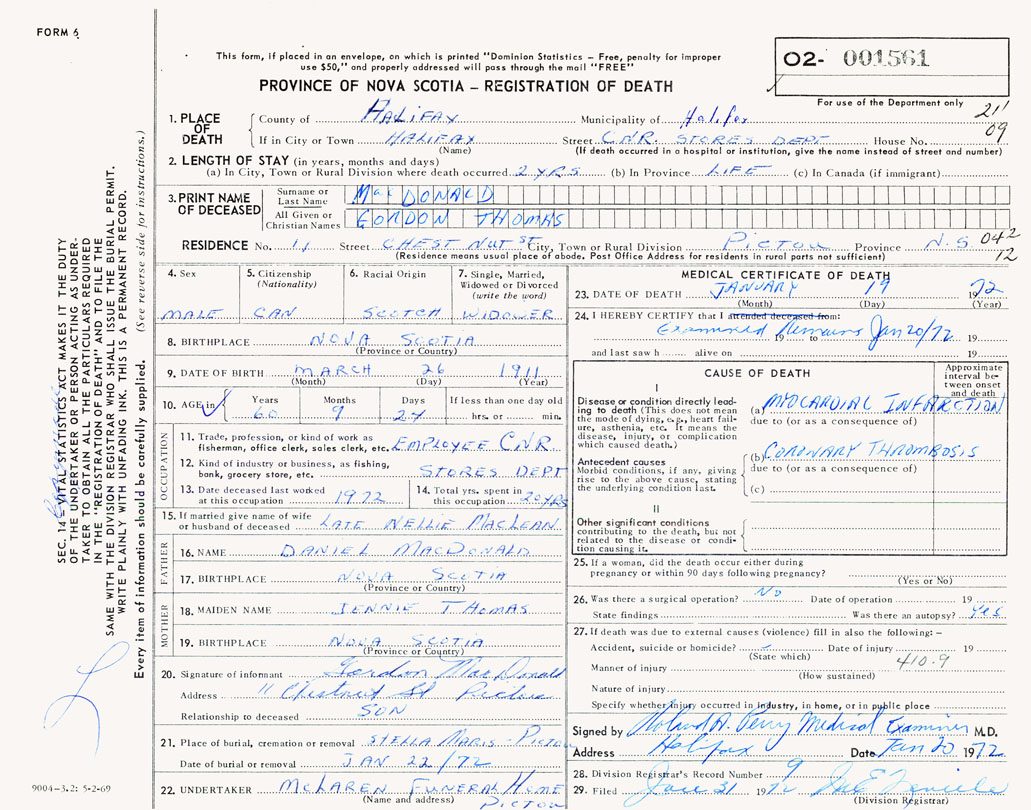 FORM 6
This form, if placed in an envelope, on which is printed "Dominion Statistics – Free, penalty for improper
use $50," and properly addressed will pass through the mail "FREE"
PROVINCE OF NOVA SCOTIA – REGISTRATION OF DEATH
O2- 001561
For use of the Department only
21'
09
1. PLACE OF DEATH
County of HALIFAX Municipality of Halifax
If in City or Town HALIFAX Street CNR. STORES DEPT House No.
(Name) (If death occurred in a hospital or institution, give the name instead of street and number)
2. LENGTH OF STAY (in years, months and days)
(a) In City, Town or Rural Division where death occurred 2 YRS (b) In Province LIFE (c) In Canada (if immigrant)
3. PRINT NAME OF DECEASED
Surname or Last Name MacDONALD
All Given or Christian Names GORDON THOMAS
RESIDENCE No. 11 Street CHESTNUT ST City, Town or Rural Division PICTOU Province N.S. 042
12
(Residence means usual place of abode. Post Office Address for residents in rural parts not sufficient)
4. Sex
MALE
5. Citizenship
(Nationality)
CAN
6. Racial Origin
SCOTCH
7. Single, Married,
Widowed or Divorced
(write the word)
WIDOWER
8. BIRTHPLACE NOVA SCOTIA
(Province or Country)
9. DATE OF BIRTH MARCH 26 1911
(Month) (Day) (Year)
10. AGE in
Years Months Days If less than one day old
60 9 24 hrs. or min.
OCCUPATION
11. Trade, profession, or kind of work as
fisherman, office clerk, sales clerk, etc. EMPLOYEE CNR
12. Kind of industry or business, as fishing,
bank, grocery store, etc. STORES DEPT
13. Date deceased last worked
at this occupation 1972
14. Total yrs. spent in
this occupation 20 YRS
15. If married give name of wife
or husband of deceased LATE NELLIE MACLEAN
FATHER
16. NAME DANIEL MACDONALD
17. BIRTHPLACE NOVA SCOTIA
(Province or Country)
MOTHER
18. MAIDEN NAME JENNIE THOMAS
19. BIRTHPLACE NOVA SCOTIA
(Province or Country)
20. Signature of informant Gordon MacDonald
Address 11 Chestnut St Pictou
Relationship to deceased SON
21. Place of burial, cremation or removal STELLA MARIS - PICTOU
Date of burial or removal JAN 22/72
22. UNDERTAKER McLAREN FUNERAL HOME
(Name and address) PICTOU
MEDICAL CERTIFICATE OF DEATH
23. DATE OF DEATH JANUARY 19 1972
(Month) (Day) (Year)
24. I HEREBY CERTIFY that I attended deceased from:
Examined Remains Jan 20/72
19 to 19
and last saw h alive on 19
CAUSE OF DEATH
Approximate
interval be-
tween onset
and death
I
Disease or condition directly lead-
ing to death (This does not mean
the mode of dying, e.g., heart fail-
ure, asthenia, etc. It means the
disease, injury, or complication
which caused death.)
(a) MYOCARDIAL INFARCTION
due to (or as a consequence of)
Antecedent causes
Morbid conditions, if any, giving
rise to the above cause, stating
the underlying condition last.
(b) CORONARY THROMBOSIS
due to (or as a consequence of)
(c)
II
Other significant conditions
contributing to the death, but not
related to the disease or condi-
tion causing it.
25. If a woman, did the death occur either during
pregnancy or within 90 days following pregnancy?
(Yes or No)
26. Was there a surgical operation? No Date of operation 19
State findings Was there an autopsy? Yes
27. If death was due to external causes (violence) fill in also the following: –
Accident, suicide or homicide? Date of injury 19
(State which)
410.9
Manner of injury
(How sustained)
Nature of injury
Specify whether injury occurred in industry, in home, or in public place
Signed by Roland A. Perry Medical Examiner M.D.
Address Halifax Date Jan 20 1972
28. Division Registrar's Record Number 9
29. Filed Jan 31 1972
(Division Registrar)
SEC. 14 – VITAL STATISTICS ACT MAKES IT THE DUTY
OF THE UNDERTAKER OR PERSON ACTING AS UNDER-
TAKER TO OBTAIN ALL THE PARTICULARS REQUIRED
IN THE "REGISTRATION OF DEATH" AND TO FILE THE
SAME WITH THE DIVISION REGISTRAR WHO SHALL ISSUE THE BURIAL PERMIT.
WRITE PLAINLY WITH UNFADING INK. THIS IS A PERMANENT RECORD.
Every item of information should be carefully supplied. (See reverse side for instructions.)
9004-3.2: 5-2-69